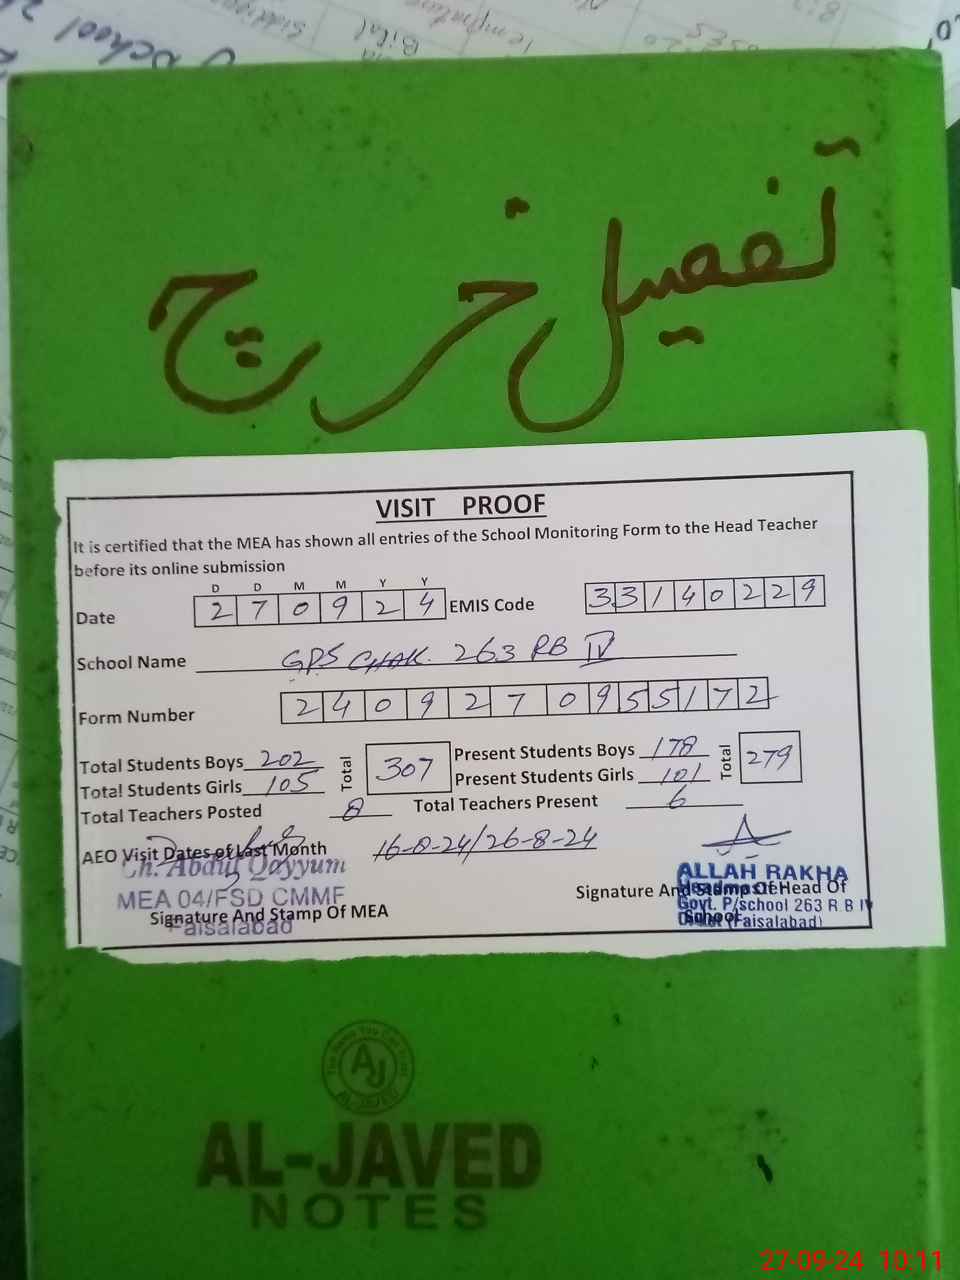 School
Bital
تفصیل خرچ
VISIT PROOF
It is certified that the MEA has shown all entries of the School Monitoring Form to the Head Teacher
before its online submission
D D M M Y Y
Date 2 7 0 9 2 4 EMIS Code 3 3 1 4 0 2 2 9
School Name GPS CHAK. 263 RB IV
Form Number 2 4 0 9 2 7 0 9 5 5 1 7 2
Total Students Boys 202 Total 307 Present Students Boys 178 Total 279
Total Students Girls 105 Present Students Girls 101
Total Teachers Posted 8 Total Teachers Present 6
AEO Visit Dates of Last Month 16-8-24/26-8-24
Ch. Abdul Qayyum
MEA 04/FSD CMMF
Faisalabad
Signature And Stamp Of MEA
Signature And Stamp Of Head Of
School
ALLAH RAKHA
Headmaster
Govt. P/school 263 R B IV
(Faisalabad)
AJ
AL-JAVED
AL-JAVED
NOTES
27-09-24 10:11